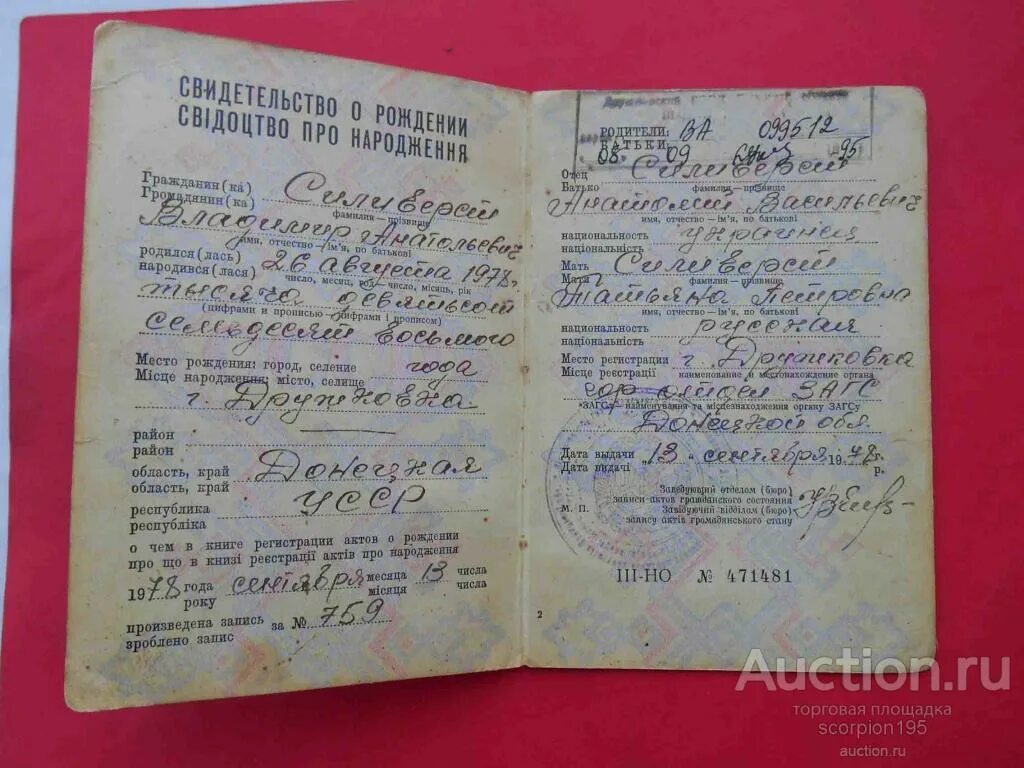 СВИДЕТЕЛЬСТВО О РОЖДЕНИИ
СВІДОЦТВО ПРО НАРОДЖЕННЯ
Гражданин(ка)
Громадянин(ка)
Силиверст
фамилия — прізвище
Владимир Анатольевич
имя, отчество — ім'я, по батькові
родился(лась)
народився(лася)
26 августа 1978г.
число, месяц, год — число, місяць, рік
тысяча девятьсот
(цифрами и прописью — цифрами і прописом)
семьдесят восьмого
Место рождения: город, селение
года
Місце народження: місто, селище
г. Дружковка
район
район
область, край
Донецкая
область, край
республика
УССР
республіка
о чем в книге регистрации актов о рождении
про що в книзі реєстрації актів про народження
1978 года сентября месяца 13 числа
року місяця числа
произведена запись за № 759
зроблено запис
РОДИТЕЛИ: ВА 099512
БАТЬКИ:
08 09 95
Отец Силиверст
Батько фамилия — прізвище
Анатолий Васильевич
имя, отчество — ім'я, по батькові
национальность украинец
національність
Мать Силиверст
Мати фамилия — прізвище
Татьяна Петровна
имя, отчество — ім'я, по батькові
национальность русская
національність
Место регистрации г. Дружковка
Місце реєстрації наименование и местонахождение органа
гор отдел ЗАГС
ЗАГСу — найменування та місцезнаходження органу ЗАГСу
Донецкой обл.
Дата выдачи „13 „ сентября 1978 г.
Дата видачі р.
Заведующий отделом (бюро)
записи актов гражданского состояния
М. П. Завідуючий відділом (бюро)
запису актів громадянського стану
III-НО № 471481
2
Auction.ru
торговая площадка
scorpion195
auction.ru